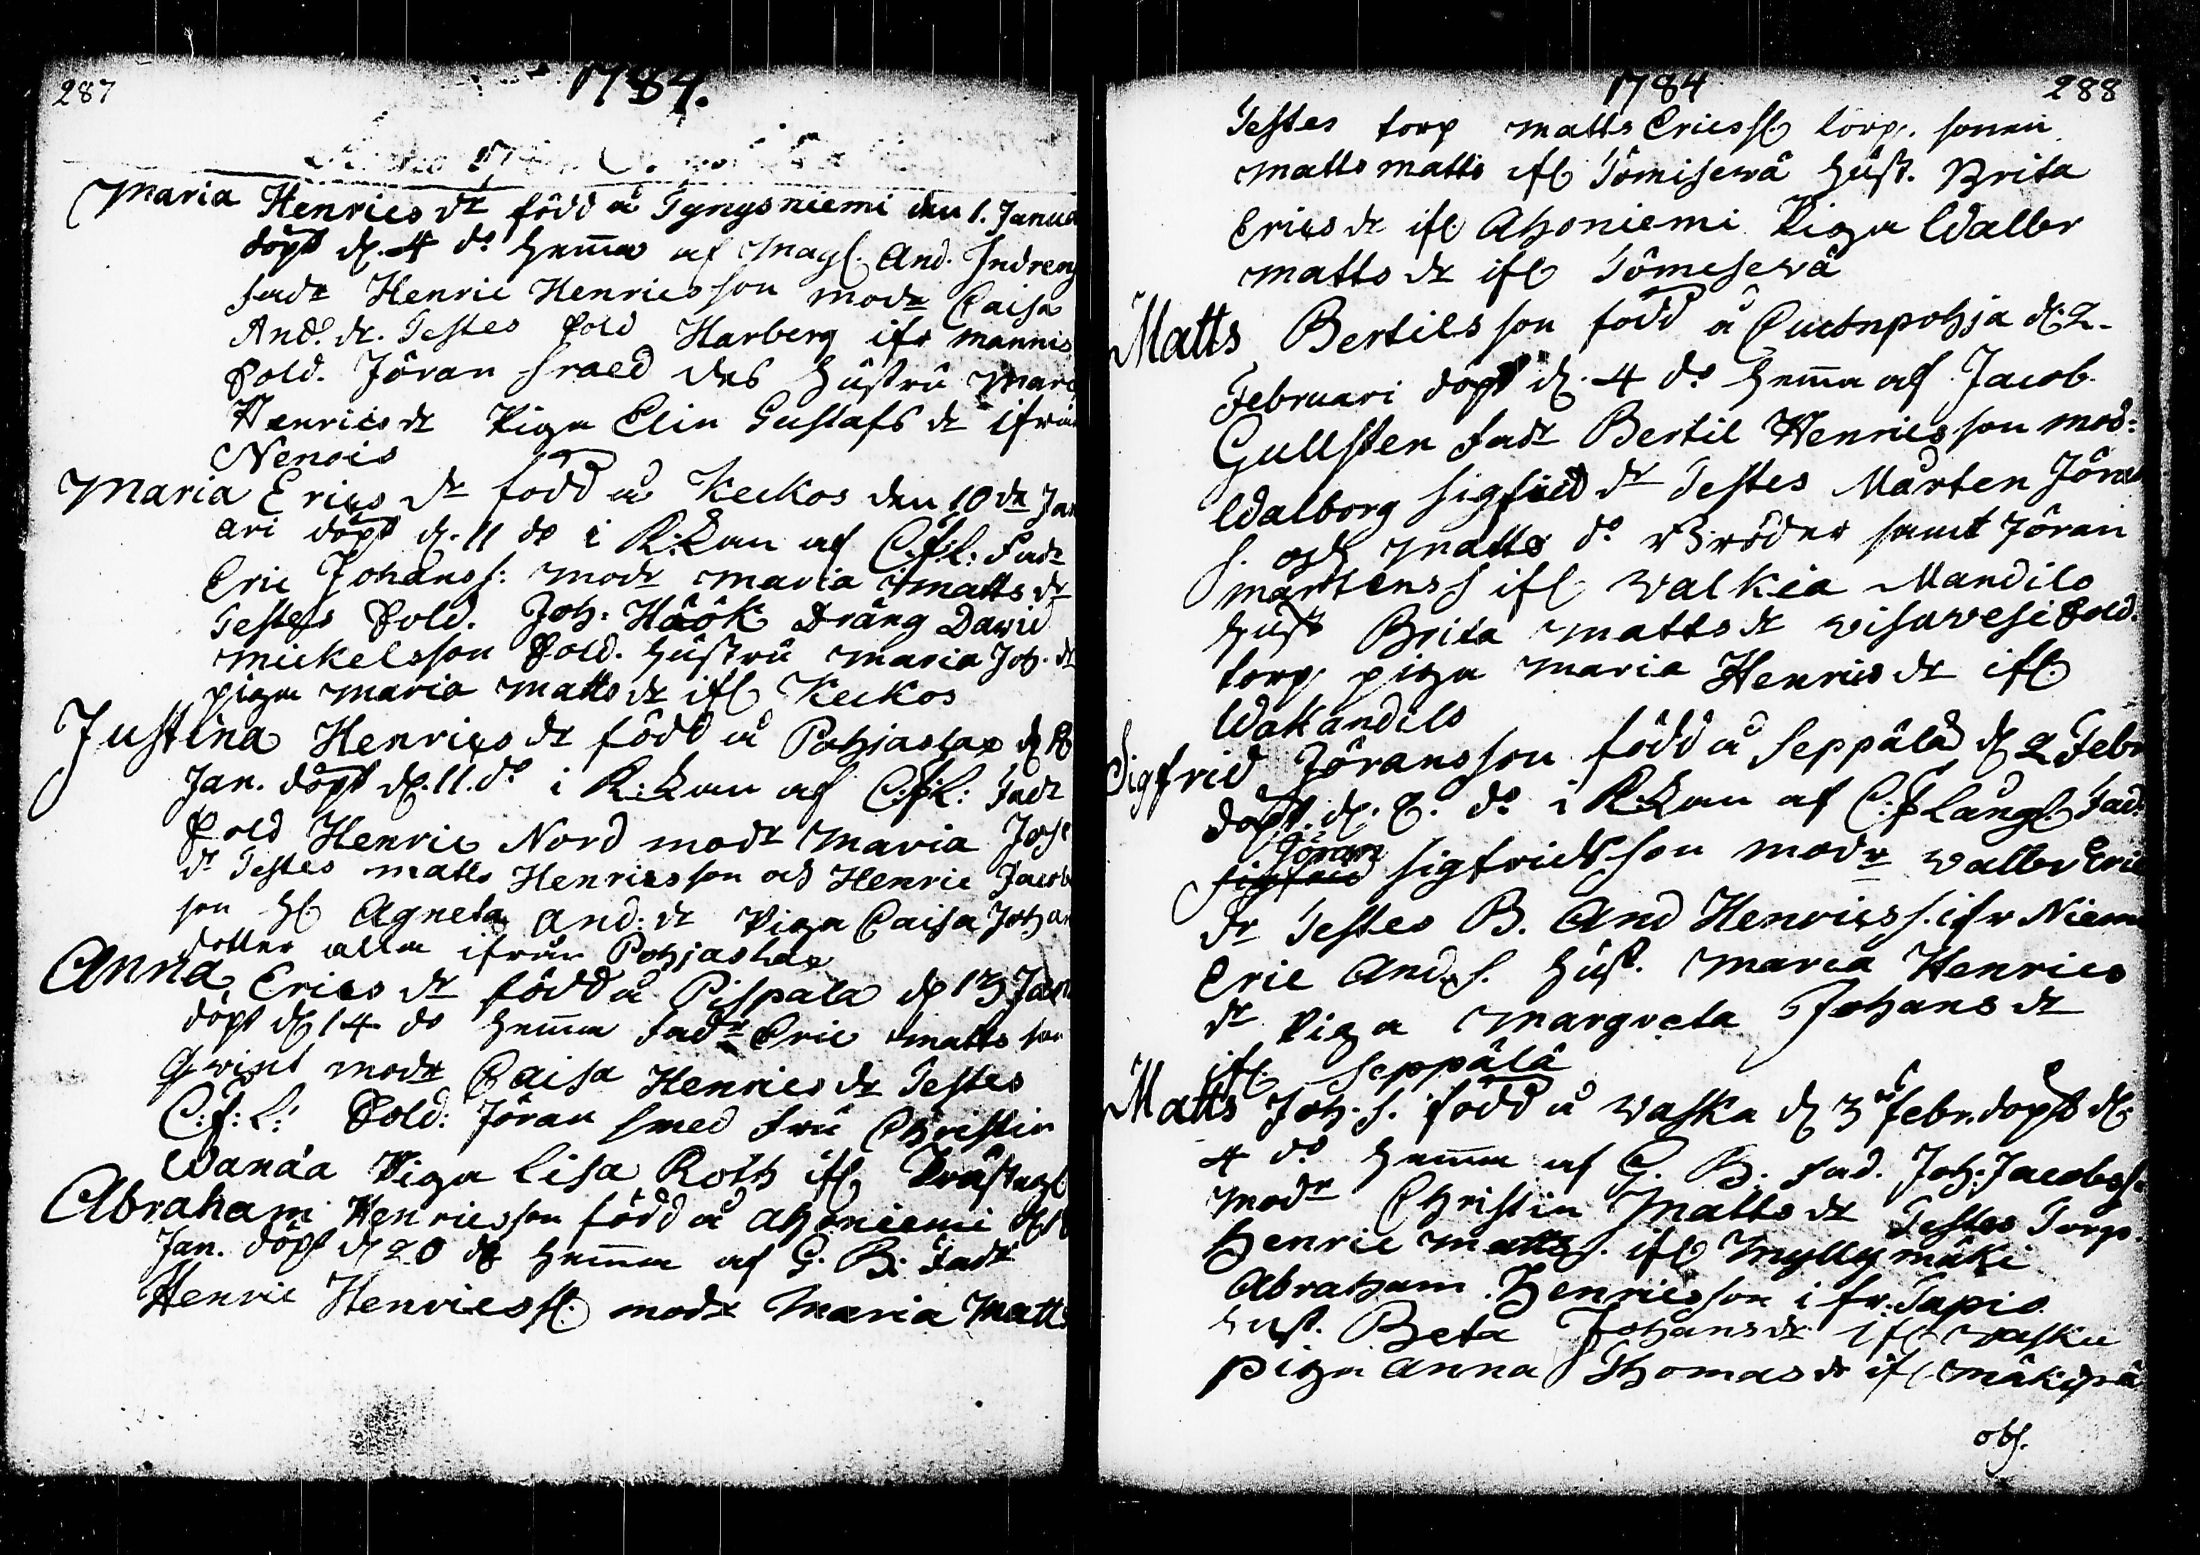 287
1784.
Maria Henrics dr född å Tynysniemi den 1. Janua
döpt d. 4 do hema af Mag. And. Indren
fadr Henric Henricsson modr Caisa
And. dr. Testes Sold Harberg ifr mannis
Sold. Jöran Smed des hustru Marg
Henrics dr Piga Elin Gustafs dr ifrån
Nenois
Maria Erics dr född å Keckos den 10 de Jan
ari döpt d. 11 do i K:kan af C:f:L: Fadr
Eric Johans s: modr Maria Matts dr
Testes Sold. Joh. Höök Dräng David
Mickelsson Sold. hustru Maria Joh. dr
piga Maria Matts dr ifr Keckos
Justina Henrics dr född å Pohjaslax d 8
Jan. döpt d. 11. do i K:kan af C:f:L: Fadr
Sold Henric Nord modr Maria Joh
dr Testes Matts Henricsson och Henric Jacob
son H. Agneta And. dr Piga Caisa Johan
dotter alla ifrån Pohjaslax
Anna Erics dr född å Pispala d 13 Jan
döpt d 14 do hema Fadr Eric Matts son
Qwist modr Caisa Henrics dr Testes
C:f:L: Sold: Jöran Smed fru Christin
Wanaa Piga Lisa Roth ifr Prästag
Abraham Henricsson född å Ahoniemi
Jan. döpt d 20 do hema af G. B: Fadr
Henric Henricss. modr Maria Matts
1784
288
Testes torp Matts Ericss. torp. sonen
Matts Matts ifr Tömisewä hust. Brita
Erics dr ifr Ahoniemi Piga Walbr
Matts dr ifr Tömesewä
Matts Bertilsson född å d. 2.
Februari döpt d. 4 do hema af Jacob
Gullsten Fadr Bertil Henricsson mod:
Walborg Sigfred dr Testes Mårten Jöran
s. och Matts do Bröder samt Jöran
Mårtens s ifr Walkia Mandilo
hust Brita Matts dr Wisuwesi Sold.
torp piga Maria Henrics dr ifr
Wakandilo
Sigfrid Jöransson född å Seppälä d 2 Febr
döpt. d. 8. do i K:kan af C:f Lång. Fad.
Jöran
Sigfrid Sigfridsson modr Walbr Eric
dr Testes B. And Henrics s. ifr Niemi
Eric And. s. hust. Maria Henrics
dr Piga Margreta Johans dr
ifr Seppälä
Matts Joh. s. född å Waska d 3 Febr. döpt d.
4 do hema af G. B. Fad. Joh: Jacobs s.
modr Christin Matts dr Testes Torp.
Henric Matts s. ifr Myllymäki
Abraham Henricsson ifr. Tapio
hust. Beta Johans dr ifr Waska
piga Anna Thomas dr ifr Mäkipä
obs.